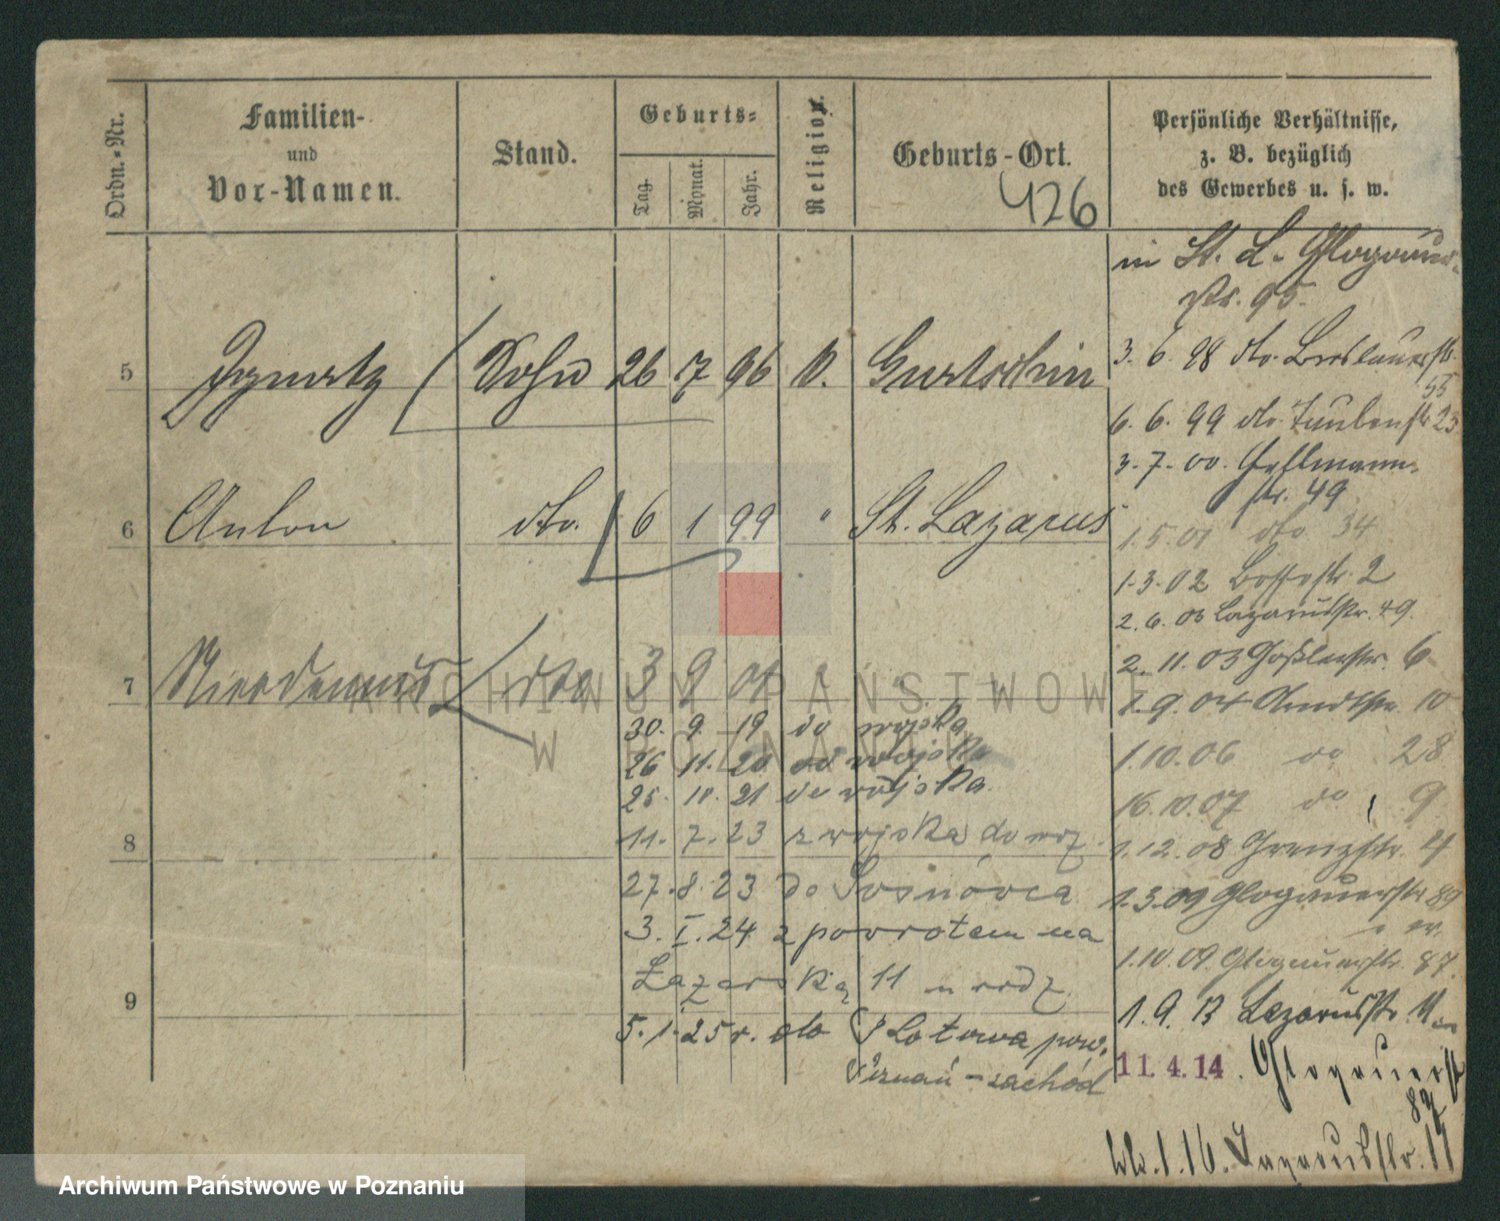 Ordn.-Nr.
Familien-
und
Vor-Namen.
Stand.
Geburts-
Tag.
Monat.
Jahr.
Religion.
Geburts-Ort.
426
Persönliche Verhältnisse,
z. B. bezüglich
des Gewerbes u. s. w.
in St. L. Glogauer-
str. 95.
5 Ignatz Sohn 26 7 96 k. Gurtschin
3. 6. 98 dto. Breslauerstr.
55
6. 6. 99 dto. Taubenstr 23
3. 7. 00.
str. 49
6 Anton dto. 6 1 99 " St. Lazarus
1. 5. 01 dto 34
1. 3. 02 2
2. 6. 03 Lazarusstr. 49.
2. 11. 03 Goßlerstr. 6
7 dto 3 9 01 " "
1. 9. 04 Arndtstr. 10
30. 9. 19 do wojska
26 11. 20 od wojska
25. 10. 21 do wojska
1. 10. 06 do 28
16. 10. 07 do 9
8
11. 7. 23 z wojska do
1. 12. 08 Grenzstr. 4
27. 8. 23 do Sosnówca
1. 3. 09 Glogauerstr 89
3. I. 24 z powrotem na
Łazarską 11
1. 10. 09. Glogauerstr. 87.
9
1. 9. 13 Lazarusstr. 11
5. 1. 25 r. do Plotowa pow.
Poznań-zachód
11. 4. 14. Glogauerstr
87
1. 16. Lazarusstr. 11
ARCHIWUM PAŃSTWOWE
W POZNANIU
Archiwum Państwowe w Poznaniu